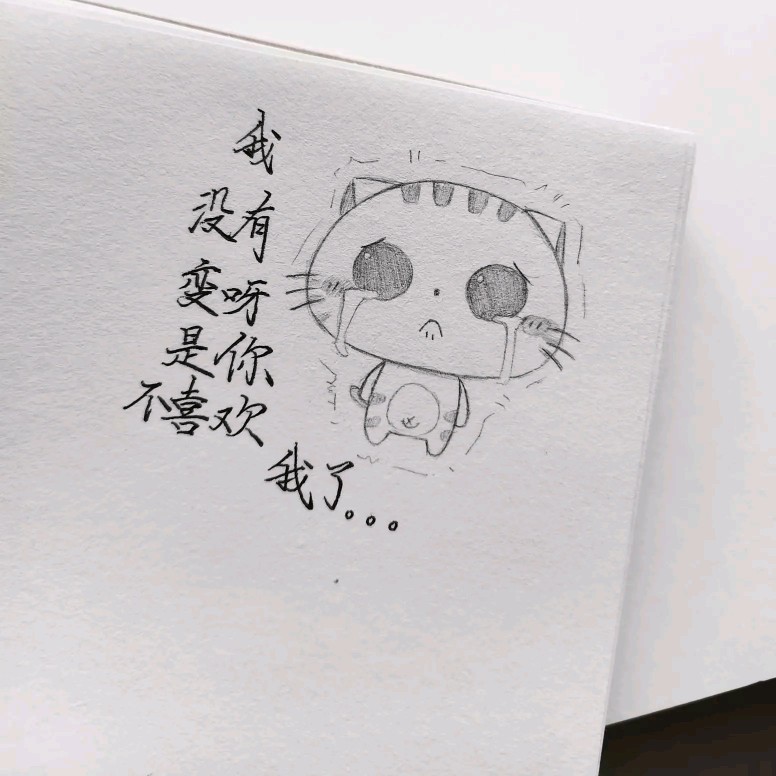 我
没有
变呀
是你
不喜欢
我了。。。